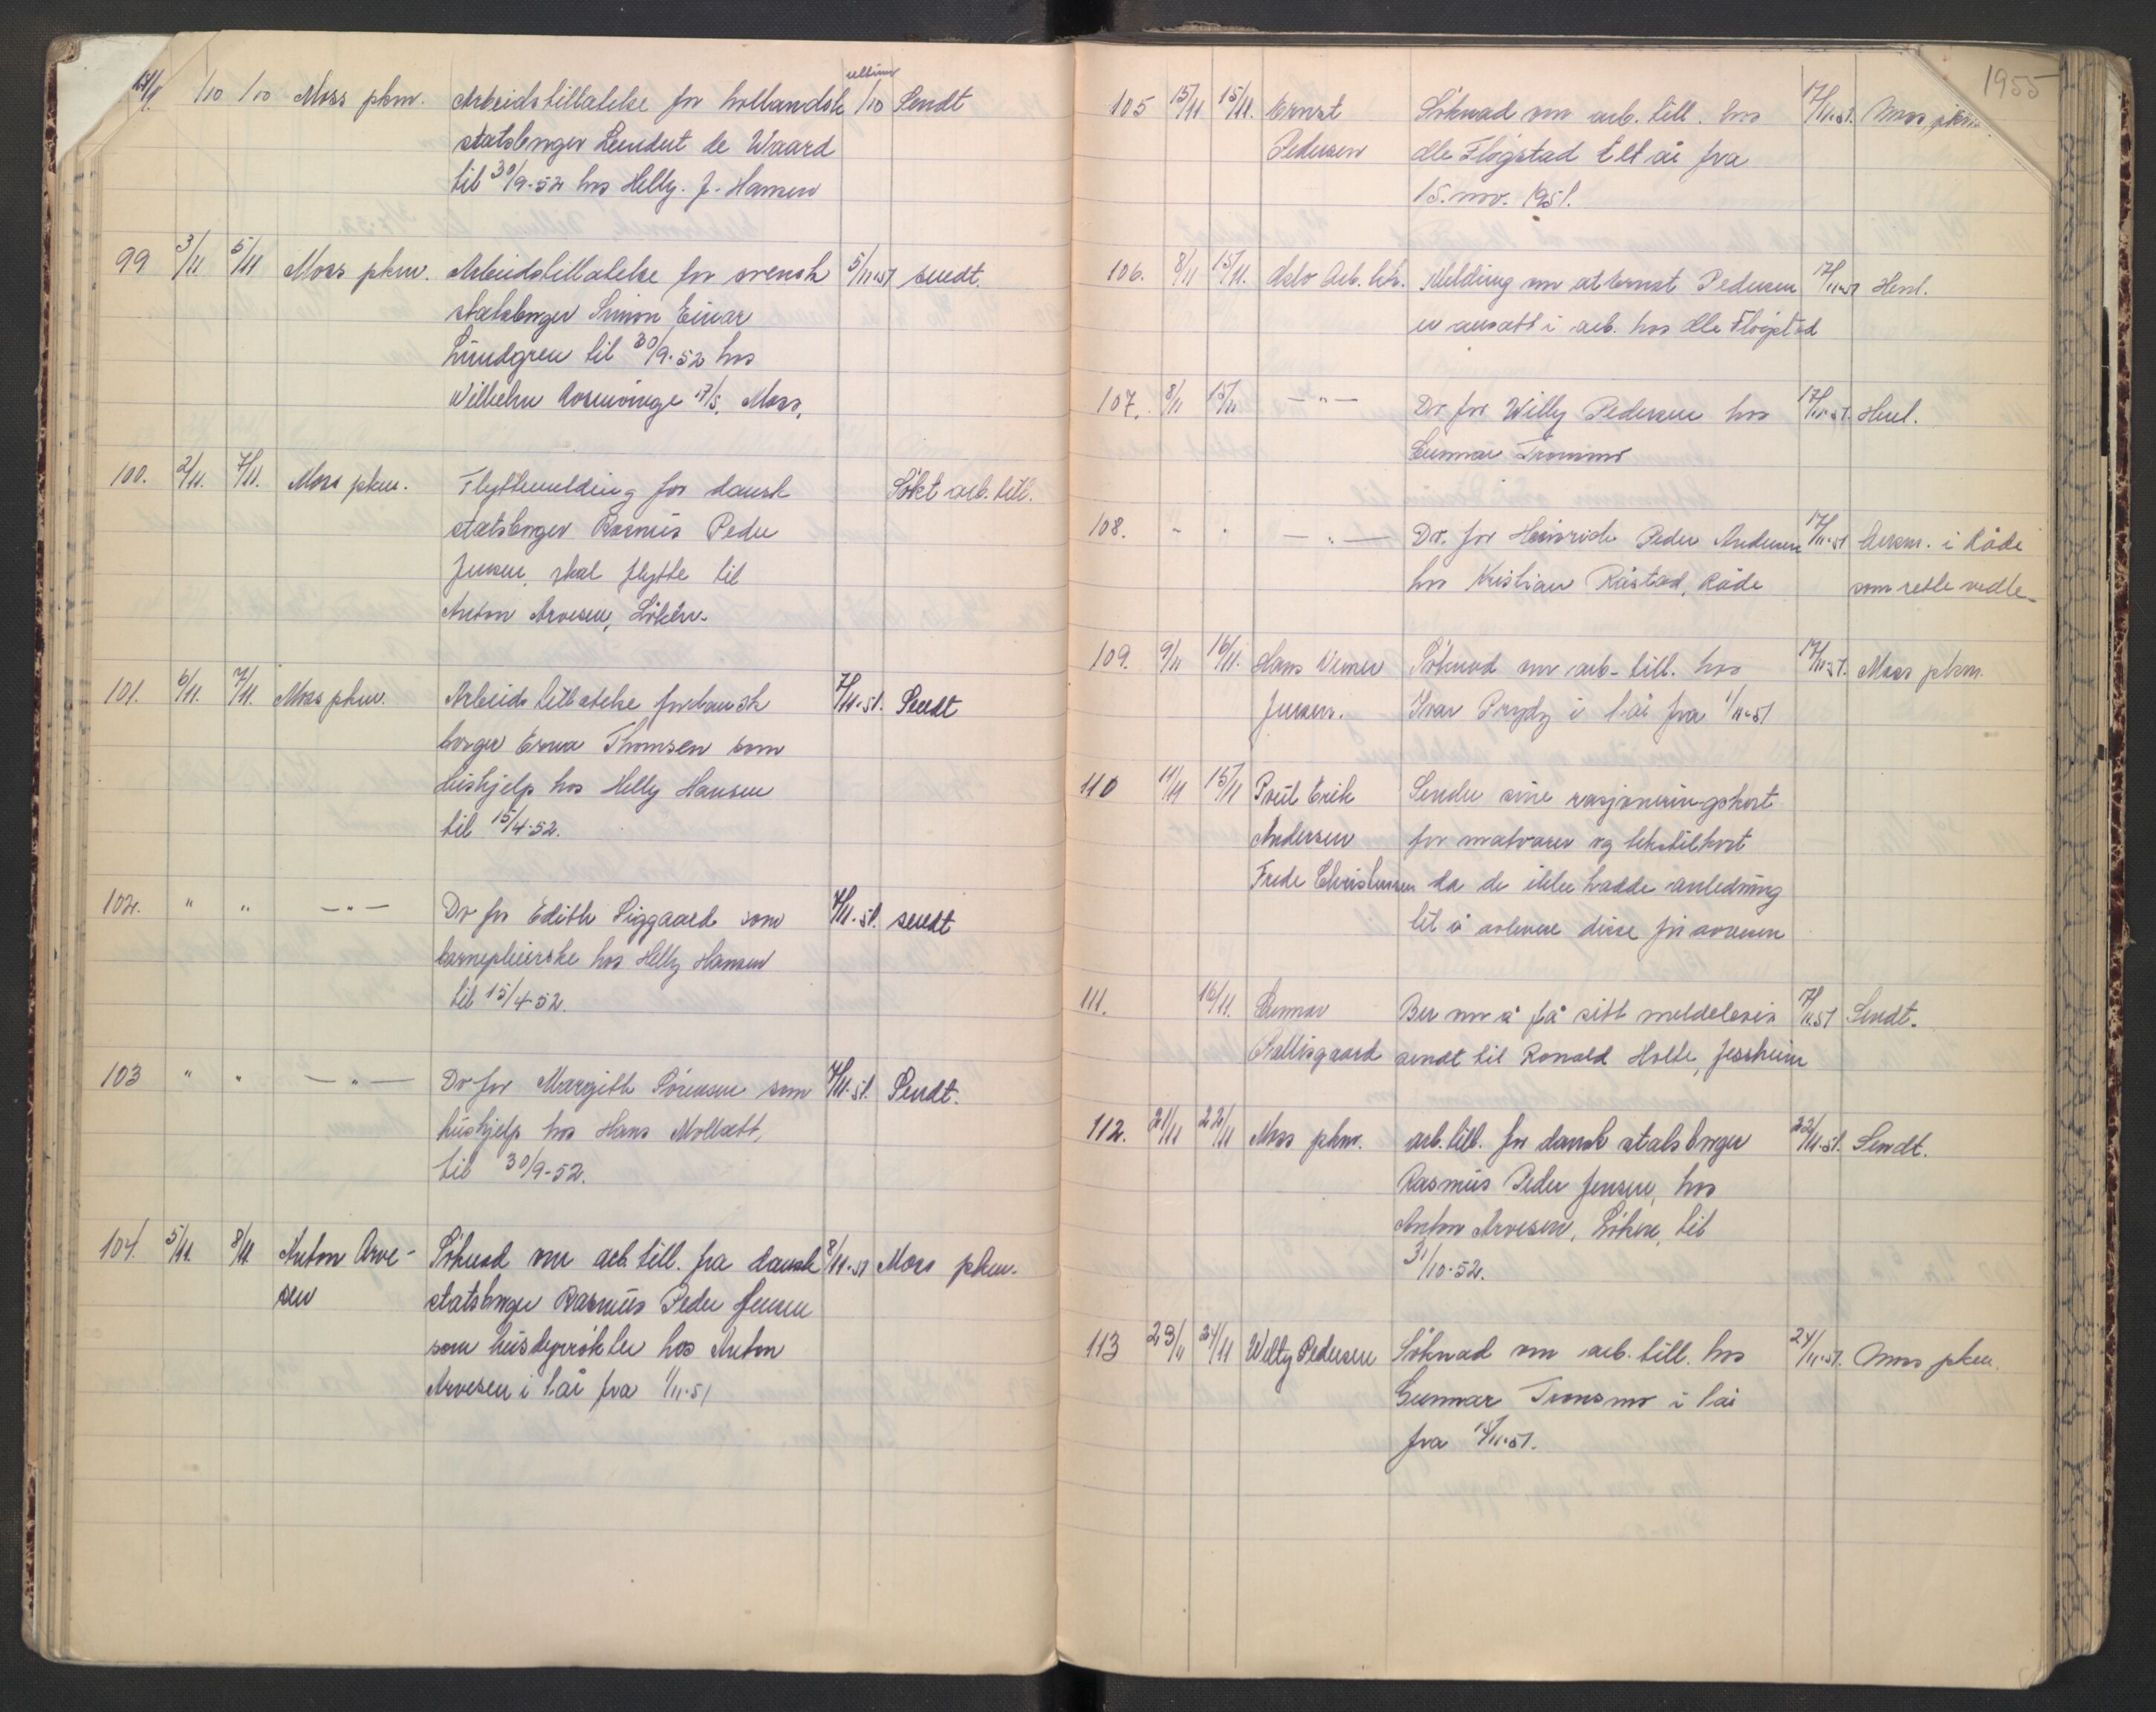 ultimo
1/10 1/10 Moss pkm. Arbeidstillatelse for hollandsk 1/10 Sendt
statsborger Leendert de Waard
til 30/9-52 hos Helly. J. Hansen
99 3/11 5/11 Moss pkm. Arbeidstillatelse for svensk 5/11-51 sendt.
statsborger Simon Einar
Lundgren til 30/9-52 hos
Wilhelm A/S, Moss,
100. 2/11. 7/11. Moss pkm. Flyttemelding for dansk Søkt arb. till.
statsborger Rasmus Peder
Jensen, skal flytte til
Anton Arvesen, Løken.
101. 6/11. 7/11. Moss pkm. Arbeidstillatelse for dansk 7/11-51. Sendt
borger Erna Thomsen som
hushjelp hos Helly Hansen
til 15/4-52.
102. " " — " — Do for Edith Siggaard som 7/11-51. sendt
barnepleierske hos Helly Hansen
til 15/4-52.
103 " " — " — Do for Margith Sørensen som 7/11-51. Sendt.
hushjelp hos Hans Mollatt,
til 30/9-52.
104. 5/11. 8/11 Anton Arve- Søknad om arb. till. fra dansk 8/11-51 Moss pkm.
sen statsborger Rasmus Peder Jensen
som husdyrrøkter hos Anton
Arvesen i 1 år fra 1/11-51
1955
105 15/11 15/11. Ernst Søknad om arb. till. hos 17/11-51. Moss pkm.
Pedersen Ole Flogstad i ett år fra
15. nov. 1951.
106. 8/11 15/11. Oslo Arb. ktr. Melding om at Ernst Pedersen 17/11-51 Henl.
er ansatt i arb. hos Ole Flogstad
107. 8/11 15/11 — " — Do for Willy Pedersen hos 17/11-51. Henl.
Gunnar Tronsmo
108. " " — " — Do. for Heinrich Peder Andersen 17/11-51 i Råde
hos Kristian Råstad, Råde som rette vedk.
109. 9/11 16/11. Hans Verner Søknad om arb. till. hos 17/11-51. Moss pkm.
Jensen. Ivar Prydz i 1 år fra 1/11-51
110 11/11 15/11 Poul Erik Sender sine rasjoneringskort
Andersen for matvarer og tekstilkort
Frede Christensen da de ikke hadde anledning
til å avlevere disse før avreisen
111. 16/11. Gunnar Ber om å få sitt meldebevis 17/11-51 Sendt.
Ballisgaard sendt til Ronald Holte, Jessheim
112. 21/11 22/11 Moss pkm. arb. till. for dansk statsborger 22/11-51. Sendt.
Rasmus Peder Jensen, hos
Anton Arvesen, Løken, til
31/10-52.
113 23/11 24/11 Willy Pedersen Søknad om arb. till. hos 24/11-51. Moss pkm.
Gunnar Tronsmo i 1 år
fra 15/11-51.